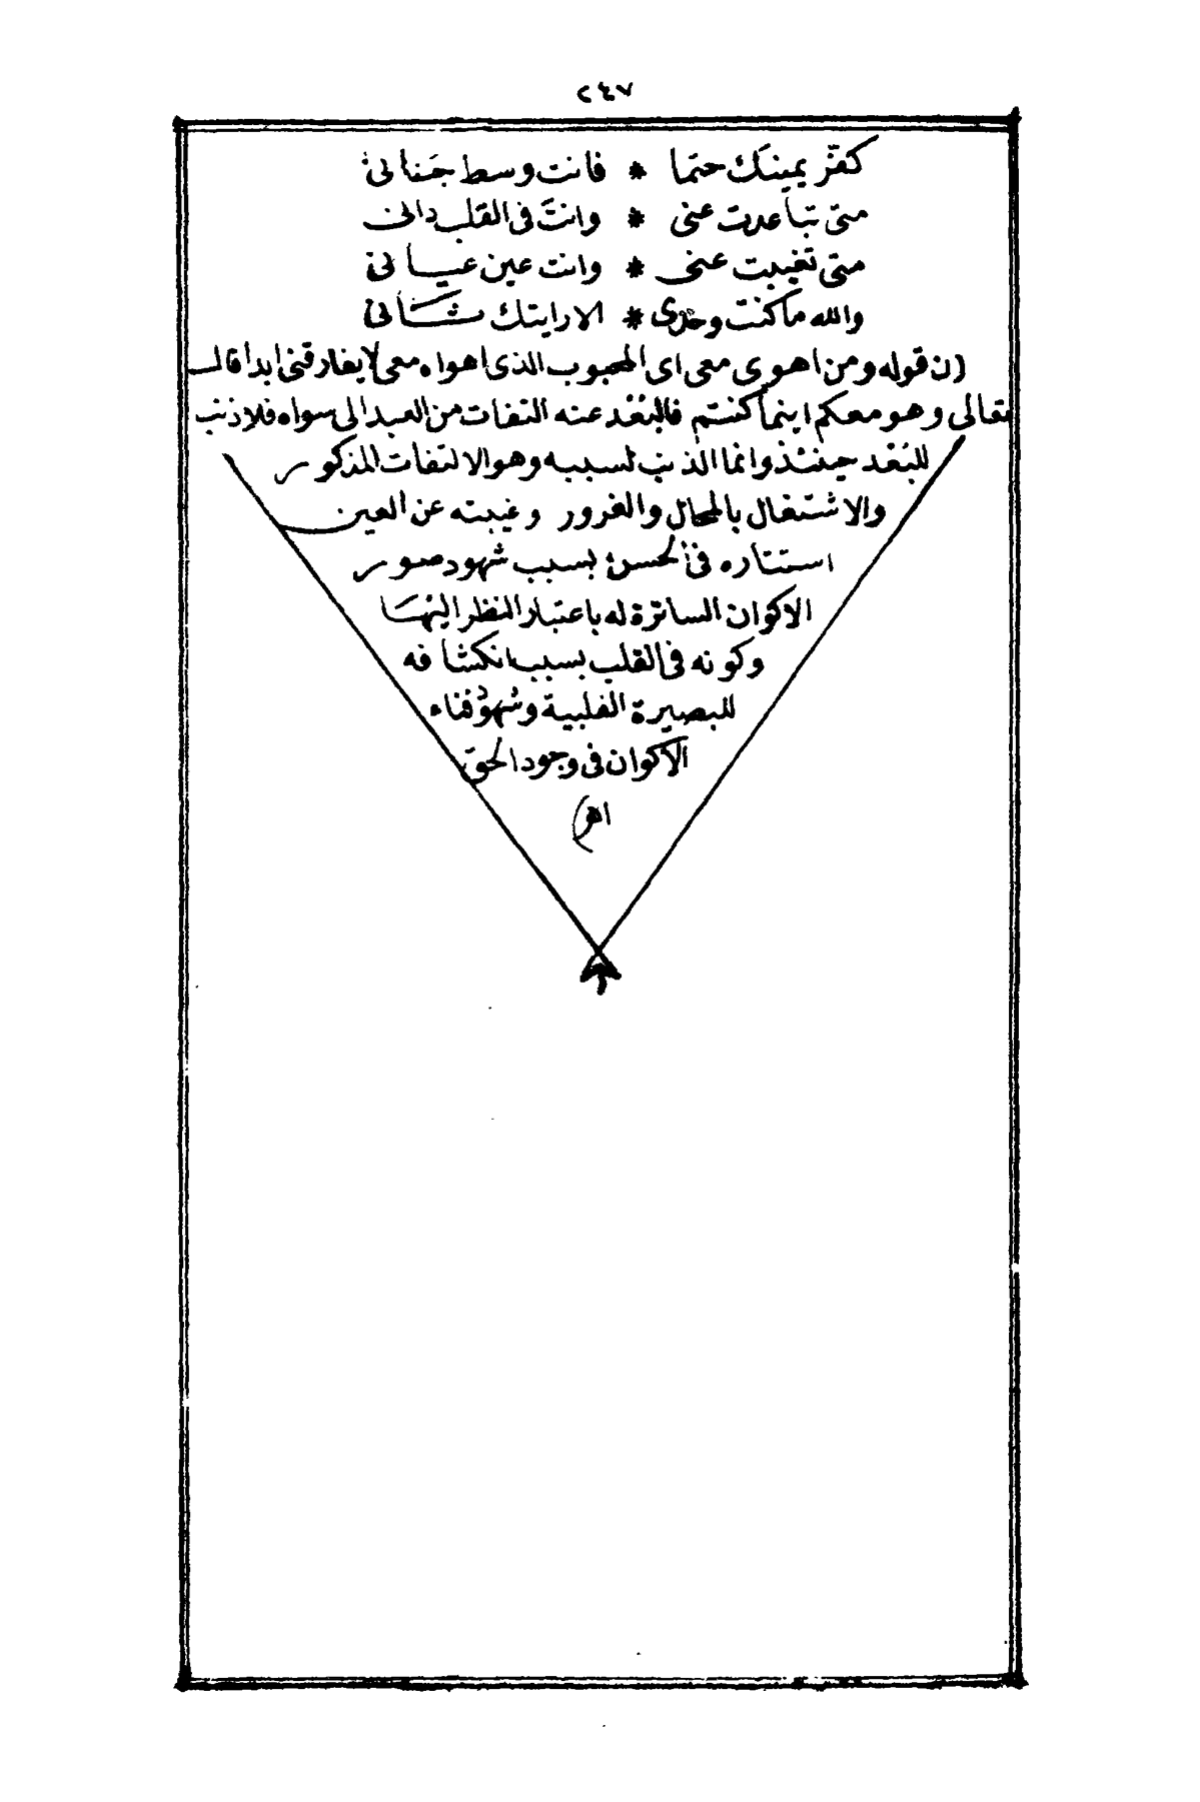 ٢٤٧
كفّر يمينك حتما * فانت وسط جَنانى
متى تباعدت عنى * وانتَ فى القلب دانى
متى تغيبت عنى * وانت عين عيانى
والله ما كنت وحدى * الا رايتك ثانى
(ن قوله ومن اهوى معى اى المحبوب الذى اهواه معى لا يفارقنى ابدا قال
تعالى وهو معكم اينما كنتم فالبُعْد عنه التفات من العبد الى سواه فلا ذنب
للبُعْد حينئذ وانما الذنب لسببه وهو الالتفات المذكور
والاشتغال بالمحال والغرور وغيبته عن العين
استتاره فى الحس بسبب شهود صور
الاكوان الساترة له باعتبار النظر اليها
وكونه فى القلب بسبب انكشافه
للبصيرة القلبية وشهود فناء
الاكوان فى وجود الحق
اهـ)